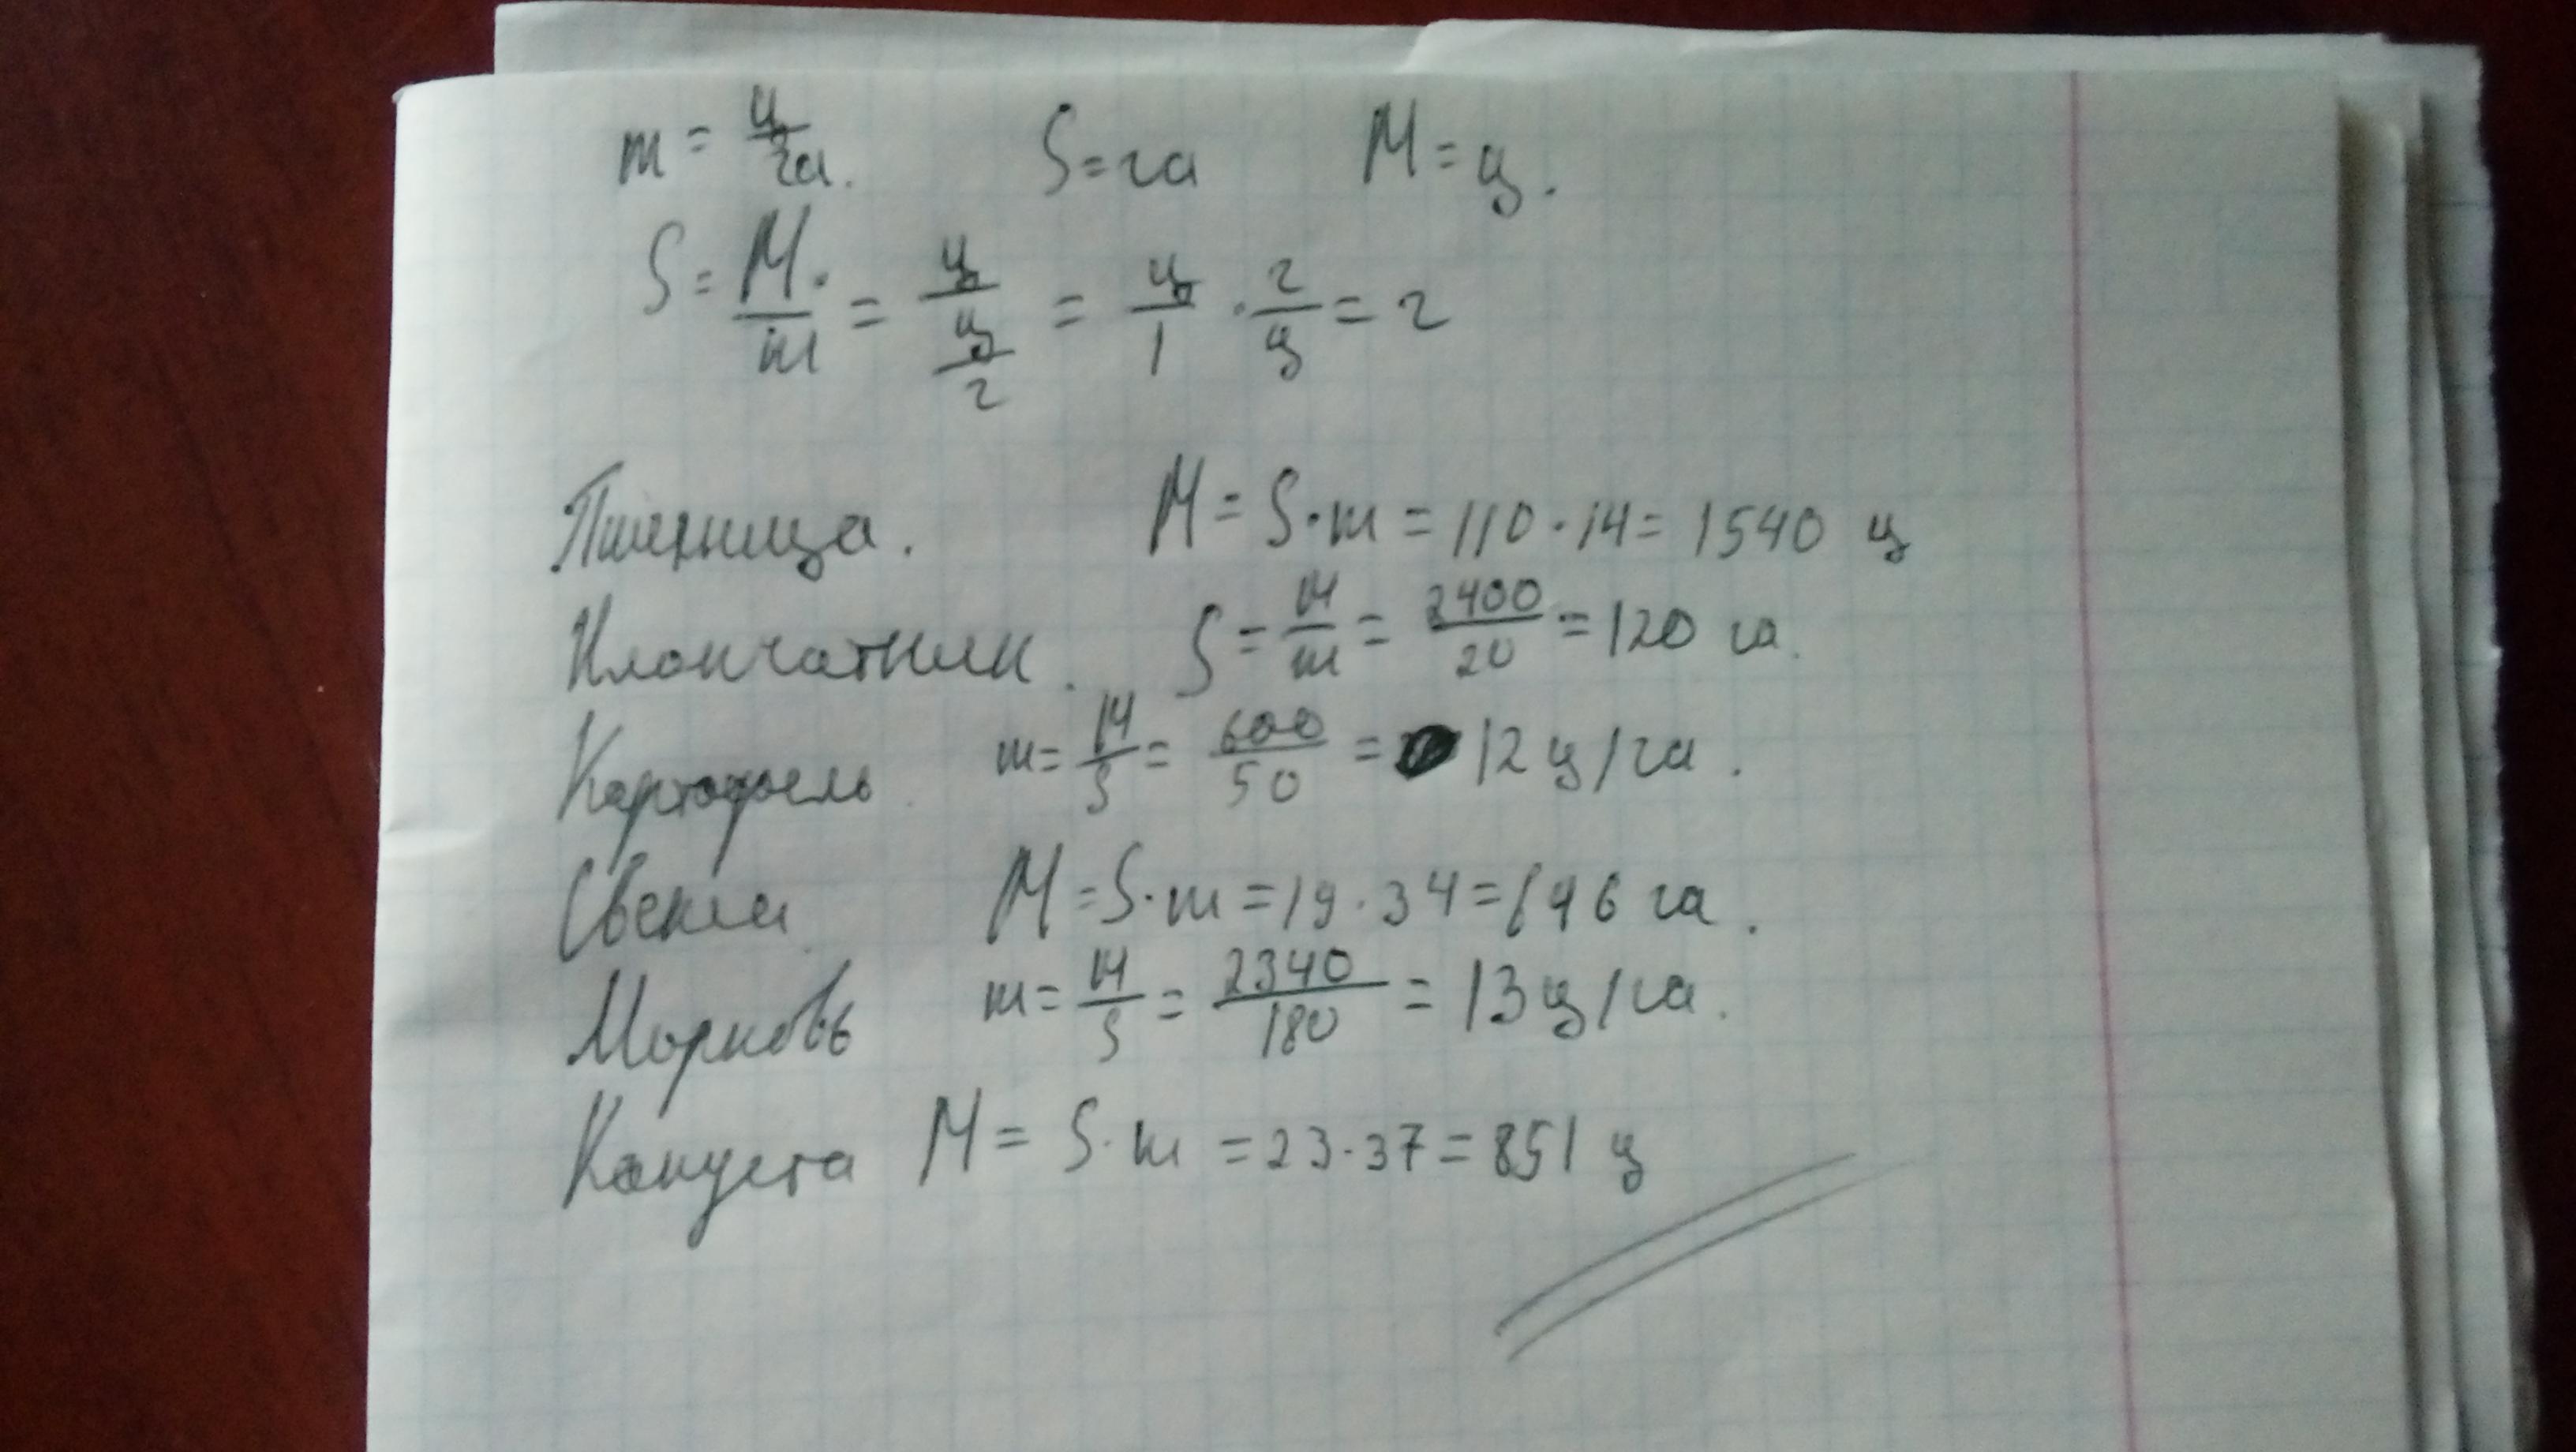 m = ц/га. S = га M = ц.
S = M/m = ц/ц/г = ц/1 · г/ц = г
Пшеница. M = S·m = 110·14 = 1540 ц
Хлопчатник. S = M/m = 2400/20 = 120 га.
Картофель m = M/S = 600/50 = 12 ц/га.
Свекла M = S·m = 19·34 = 646 га.
Морковь m = M/S = 2340/180 = 13 ц/га.
Капуста M = S·m = 23·37 = 851 ц